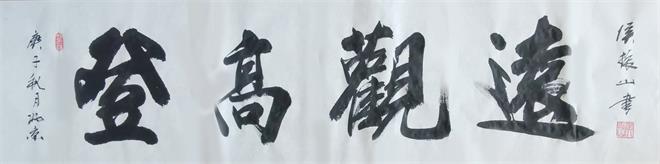 庚子秋月北京
登高觀遠
侯振山書